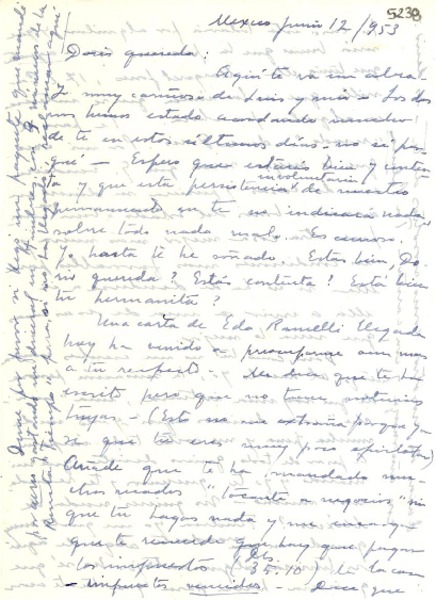 5238
Mexico junio 12/953
Doris querida:
Aquí te va un abra-
zo muy cariñoso de Luis y mío. Los dos
hemos estado acordando mucho
de te en estos últimos días - no sé por
qué - Espero que estarás bien y conten-
ta y que esta persistencia involuntaria de nuestro
pensamiento en te no indicará nada,
sobre todo nada malo. Es curioso.
Yo hasta te he soñado. Estás bien, Do-
ris querida? Estás contenta? Está bien
tu hermanita?
Una carta de Eda Ramelli llegada
hoy ha venido a preocuparme aun más
a tu respecto - Me dice que te ha
escrito pero que no tuvo noticias
tuyas - (Esto no me extraña porque ya
sé que tú eres muy poco epistolar)
Añade que te ha mandado mu-
chos recados "tocante a negocios" sin
que tú hagas nada y me encarga
que te recuerde que hay que pagar
los impuestos (Dls. 35.10) de la casa
- impuestos vencidos - Dice que
Dime por favor si llegó un paquete que mandé